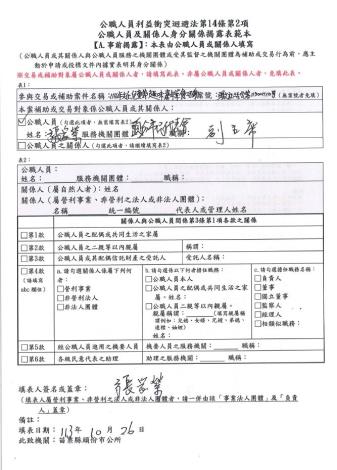 公職人員利益衝突迴避法第14條第2項
公職人員及關係人身分關係揭露表範本
【A.事前揭露】:本表由公職人員或關係人填寫
(公職人員或其關係人與公職人員服務之機關團體或受其監督之機關團體為補助或交易行為前,應主動於申請或投標文件內據實表明其身分關係)
※交易或補助對象屬公職人員或關係人者,請填寫此表。非屬公職人員或關係人者,免填此表。
表1:
參與交易或補助案件名稱: 案號: (無案號者免填)
本案補助或交易對象係公職人員或其關係人:
☑公職人員(勾選此項者,無需填寫表2)
姓名: 服務機關團體: 職稱:副主席
□公職人員之關係人(勾選此項者,請繼續填寫表2)
表2:
公職人員:
姓名: 服務機關團體: 職稱:
關係人(屬自然人者):姓名
關係人(屬營利事業、非營利之法人或非法人團體):
名稱 統一編號 代表人或管理人姓名
關係人與公職人員間係第3條第1項各款之關係
□第1款 公職人員之配偶或共同生活之家屬
□第2款 公職人員之二親等以內親屬 稱謂:
□第3款 公職人員或其配偶信託財產之受託人 受託人名稱:
□第4款
(請填寫abc欄位)
a.請勾選關係人係屬下列何者:
□營利事業
□非營利法人
□非法人團體
b.請勾選係以下何者擔任職務:
□公職人員本人
□公職人員之配偶或共同生活之家屬。姓名:
□公職人員二親等以內親屬。
親屬稱謂: (填寫親屬稱謂例如:兒媳、女婿、兄嫂、弟媳、連襟、妯娌)
姓名:
c.請勾選擔任職務名稱:
□負責人
□董事
□獨立董事
□監察人
□經理人
□相類似職務:
□第5款 經公職人員進用之機要人員 機要人員之服務機關: 職稱:
□第6款 各級民意代表之助理 助理之服務機關: 職稱:
填表人簽名或蓋章:
(填表人屬營利事業、非營利之法人或非法人團體者,請一併由該「事業法人團體」及「負責人」蓋章)
備註:
填表日期: 113年10月26日
此致機關:苗栗縣頭份市公所